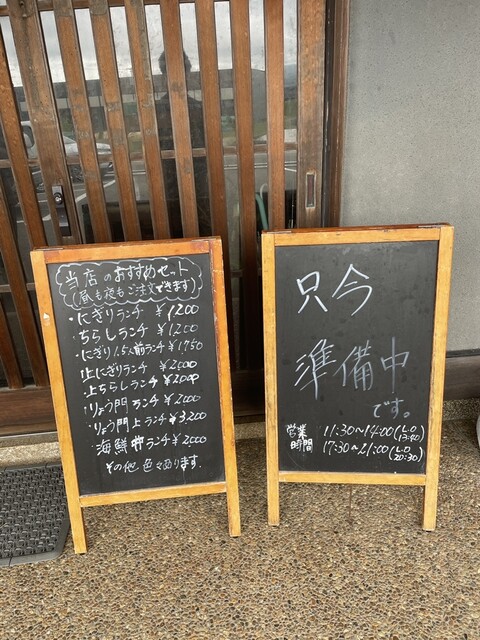 当店のおすすめセット
(昼も夜もご注文できます)
・にぎりランチ ¥1200
・ちらしランチ ¥1,200
・にぎり1.5人前ランチ ¥1,750
・上にぎりランチ ¥2000
・上ちらしランチ ¥2000
・りょう門ランチ ¥2000
・りょう門上ランチ ¥3,200
・海鮮丼ランチ ¥2000
その他、色々あります.
只今
準備中
です。
営業時間 11:30~14:00(L.O 13:40)
17:30~21:00(L.O 20:30)